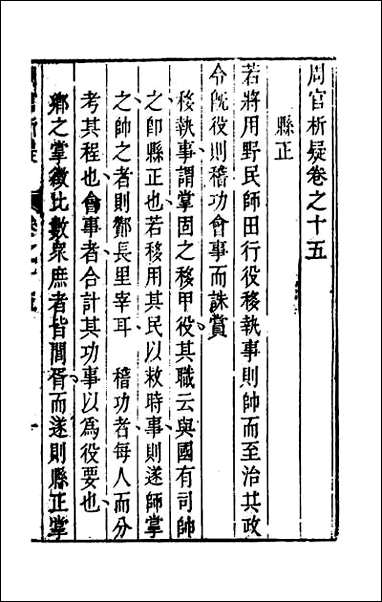 周官析疑卷之十五
縣正
若將用野民師田行役移執事則帥而至治其政
令旣役則稽功會事而誅賞
移執事謂掌固之移甲役其職云與國有司帥
之卽縣正也若移用其民以救時事則遂師掌
之帥之者則酇長里宰耳　稽功者每人而分
考其程也會事者合計其功事以爲役要也
鄉之掌徵比數衆庶者皆閭胥而遂則縣正掌